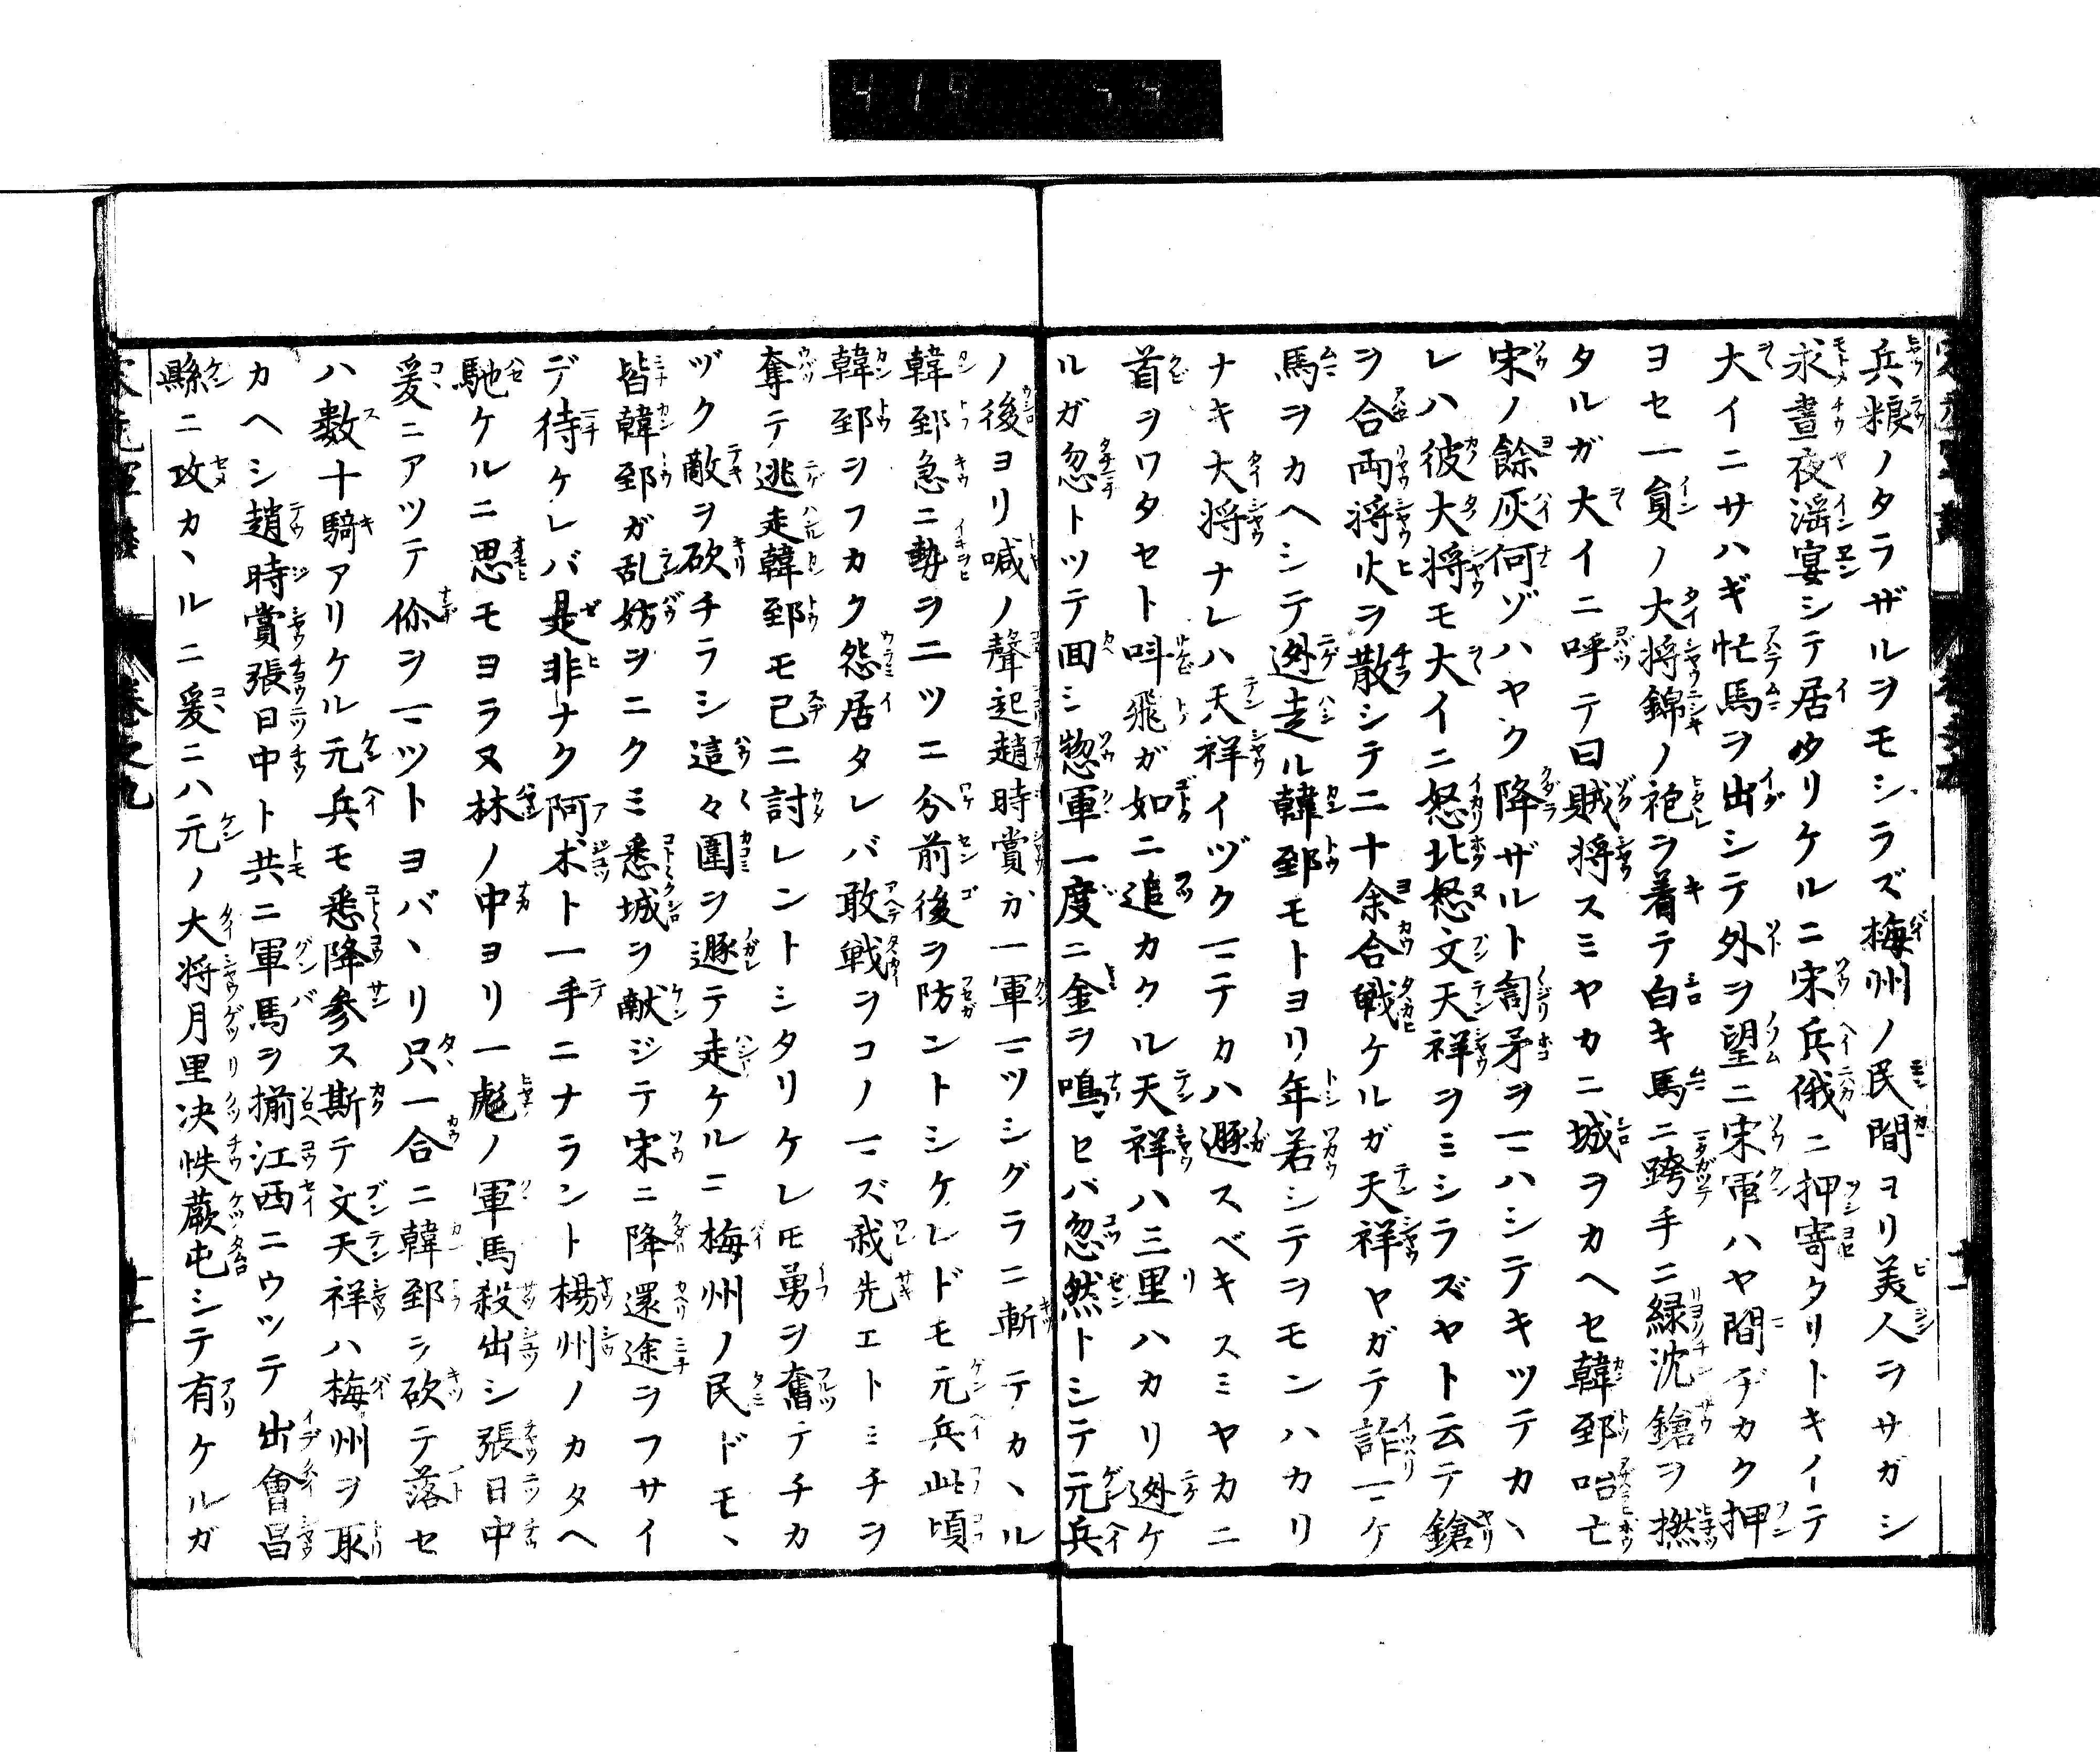 兵粮ノタラザルヲモシラズ梅州ノ民間ヨリ美人ヲサガシ
求晝夜滛宴シテ居タリケルニ宋兵俄ニ押寄タリトキイテ
大イニサハギ忙馬ヲ出シテ外ヲ望ニ宋軍ハヤ間ヂカク押
ヨセ一貟ノ大将錦ノ袍ヲ着テ白キ馬ニ跨手ニ緑沈鎗ヲ撚
タルガ大イニ呼テ曰賊将スミヤカニ城ヲカヘセ韓郅咍亡
宋ノ餘灰何ゾハヤク降ザルト訇矛ヲマハシテキツテカヽ
レハ彼大将モ大イニ怒北怒文天祥ヲミシラズヤト云テ鎗
ヲ合両将火ヲ散シテ二十余合戦ケルガ天祥ヤガテ詐マケ
馬ヲカヘシテ迯走ル韓郅モトヨリ年若シテヲモンハカリ
ナキ大将ナレハ天祥イヅクマテカハ遯スベキスミヤカニ
首ヲワタセト呌飛ガ如ニ追カクル天祥ハ三里ハカリ迯ケ
ルガ忽トツテ囬シ惣軍一度ニ金ヲ鳴セバ忽然トシテ元兵
ノ後ヨリ喊ノ聲起趙時賞カ一軍マツシグラニ斬テカヽル
韓郅急ニ勢ヲ二ツニ分前後ヲ防ントシケレドモ元兵此頃
韓郅ヲフカク怨居タレバ敢戦ヲコノマズ我先エトミチヲ
奪テ逃走韓郅モ已ニ討レントシタリケレモ勇ヲ奮テチカ
ヅク敵ヲ砍チラシ這々圍ヲ遯テ走ケルニ梅州ノ民ドモヽ
皆韓郅ガ乱妨ヲニクミ悉城ヲ献ジテ宋ニ降還途ヲフサイ
デ待ケレバ是非ナク阿朮ト一手ニナラント楊州ノカタヘ
馳ケルニ思モヨラヌ林ノ中ヨリ一彪ノ軍馬殺出シ張日中
爰ニアツテ伱ヲマツトヨバヽリ只一合ニ韓郅ヲ砍テ落セ
ハ数十騎アリケル元兵モ悉降参ス斯テ文天祥ハ梅州ヲ取
カヘシ趙時賞張日中ト共ニ軍馬ヲ揃江西ニウツテ出會昌
縣ニ攻カヽルニ爰ニハ元ノ大将月里决怢蕨屯シテ有ケルガ